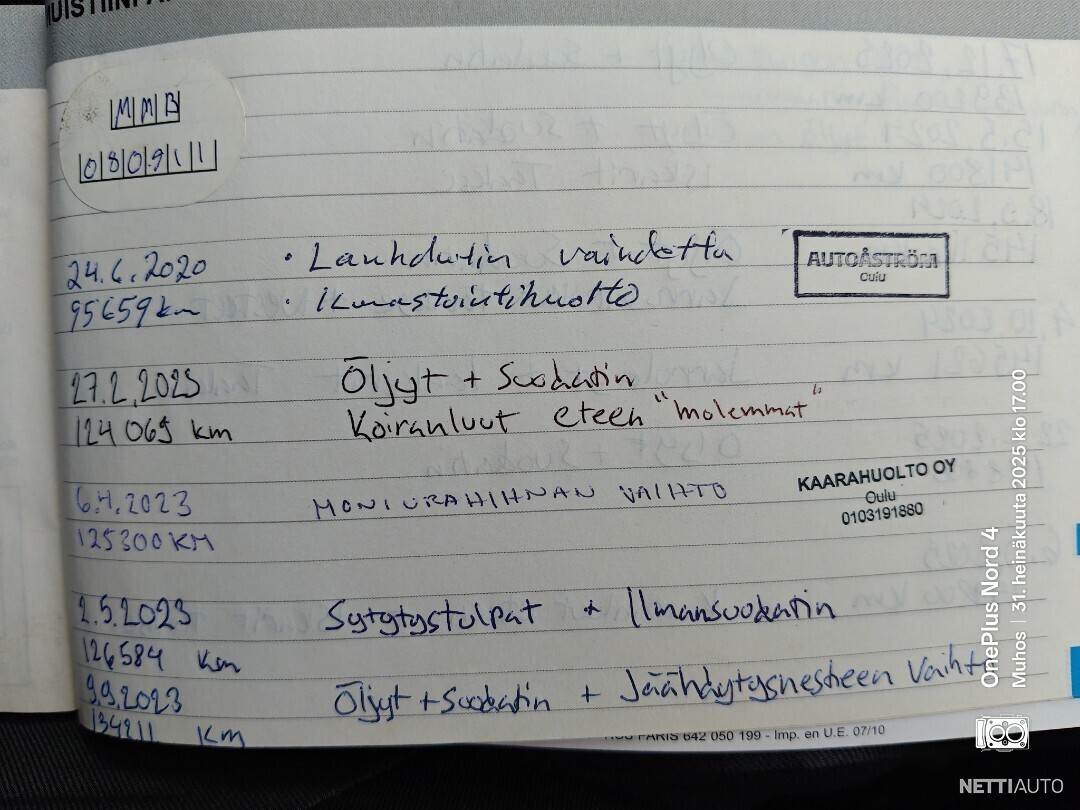 MMB
0809111
24.6.2020 • Lauhdutin vaihdettu
95659km • Ilmastointihuolto
AUTOÅSTRÖM
Oulu
27.2.2023 Öljyt + Suodatin
124069 km Koiranluut eteen "molemmat"
6.4.2023 MONIURAHIHNAN VAIHTO
125300KM
KAARAHUOLTO OY
Oulu
0103191880
2.5.2023 Sytytystulpat + Ilmansuodatin
126584 km
9.9.2023 Öljyt + Suodatin + Jäähdytysnesteen Vaihto
134211 Km
PARIS 642 050 199 - Imp. en U.E. 07/10
OnePlus Nord 4
Muhos | 31. heinäkuuta 2025 klo 17.00
NETTIAUTO